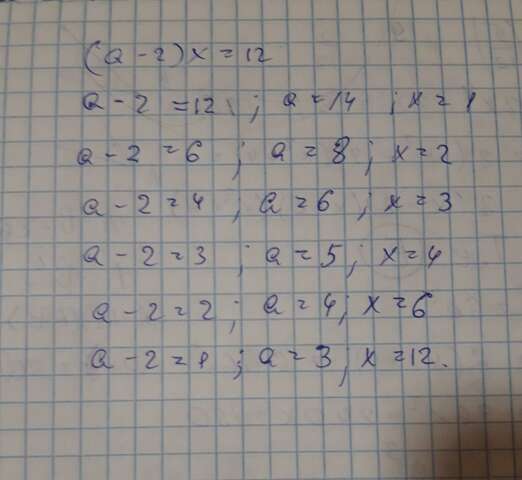 (a - 2) x = 12
a - 2 = 12 ; a = 14 ; x = 1
a - 2 = 6 ; a = 8 ; x = 2
a - 2 = 4 ; a = 6 ; x = 3
a - 2 = 3 ; a = 5 ; x = 4
a - 2 = 2 ; a = 4 ; x = 6
a - 2 = 1 ; a = 3 ; x = 12.